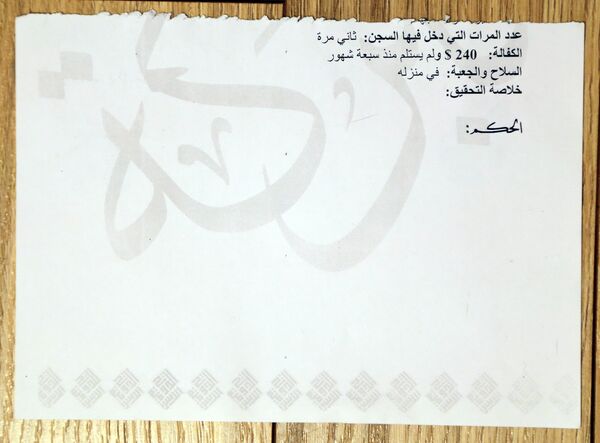 عدد المرات التي دخل فيها السجن: ثاني مرة
الكفالة: 240 $ ولم يستلم منذ سبعة شهور
السلاح والجعبة: في منزله
خلاصة التحقيق:
الحكم: